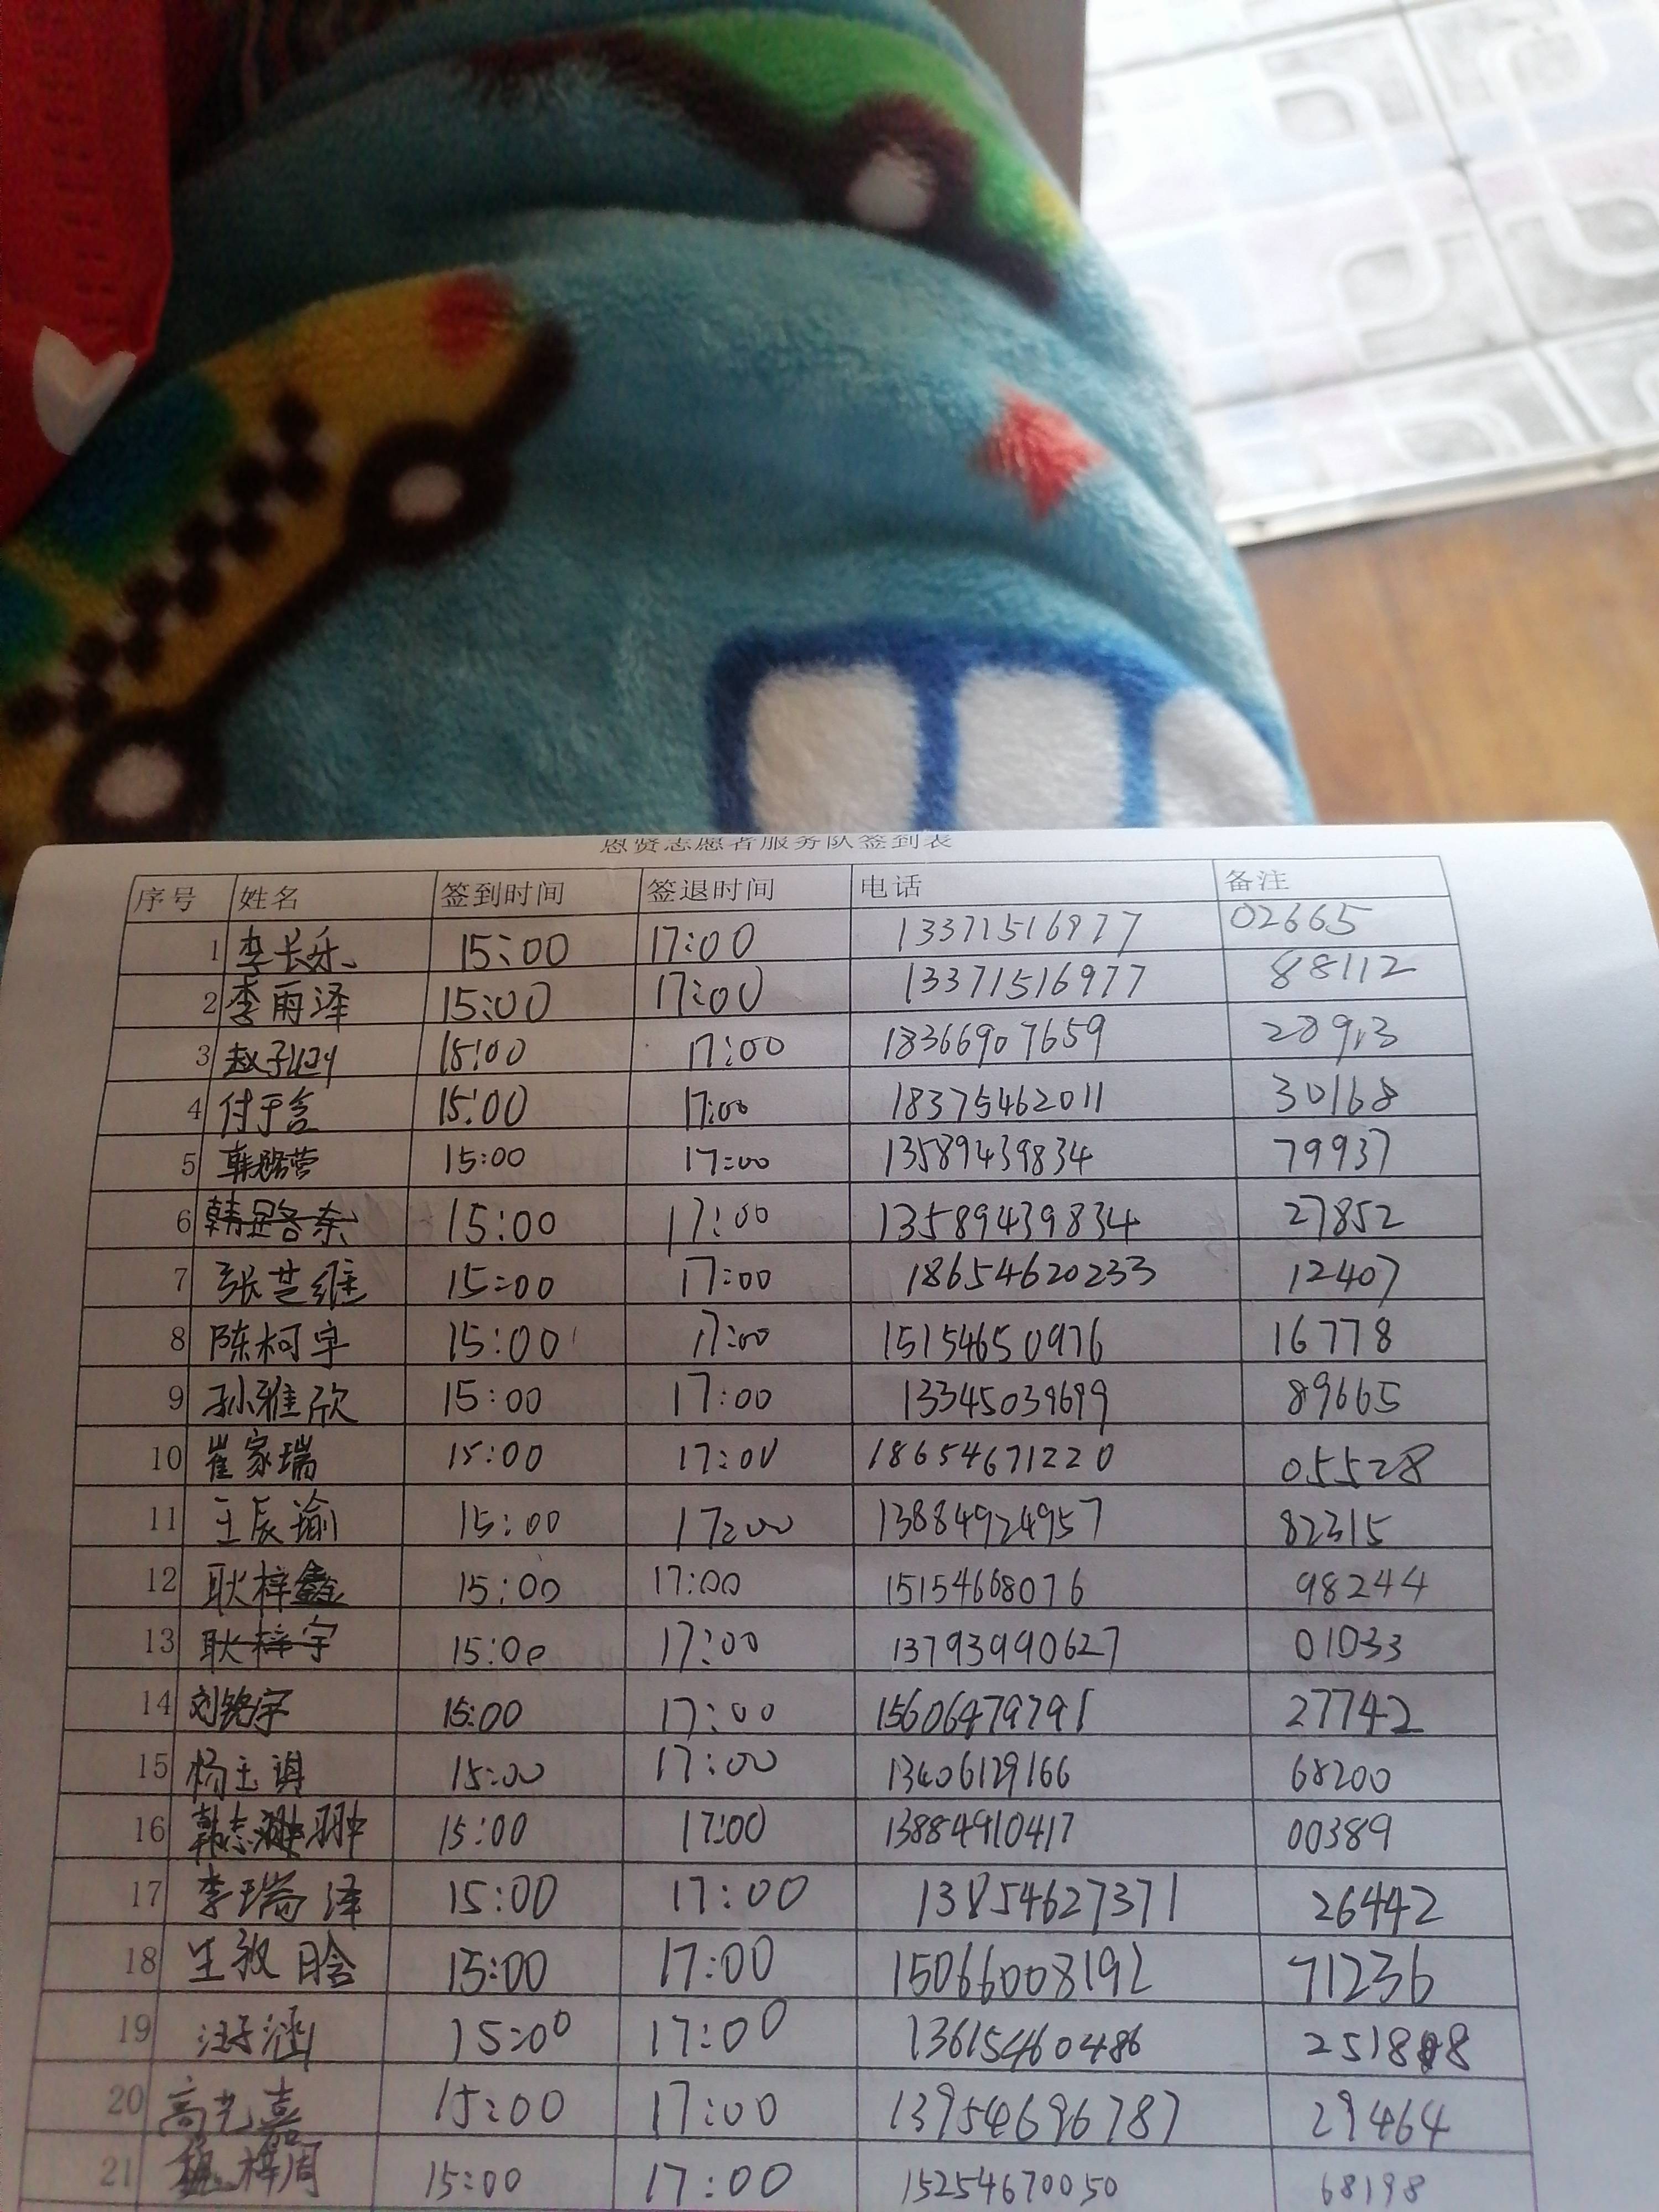 恩贤志愿者服务队签到表
序号 姓名 签到时间 签退时间 电话 备注
1 李长乐 15:00 17:00 13371516977 02665
2 李雨泽 15:00 17:00 13371516977 88112
3 赵子 15:00 17:00 18366907659 28913
4 付于含 15:00 17:00 18375462011 30168
5 15:00 17:00 13589439834 79937
6 15:00 17:00 13589439834 27852
7 张芝维 15:00 17:00 18654620233 12407
8 陈柯宇 15:00 17:00 15154650976 16778
9 孙雅欣 15:00 17:00 13345039699 89665
10 崔家瑞 15:00 17:00 18654671220 05528
11 王辰瑜 15:00 17:00 13884924957 82315
12 耿梓鑫 15:00 17:00 15154668076 98244
13 耿梓宇 15:00 17:00 13793990627 01033
14 刘铭宇 15:00 17:00 15606479791 27742
15 杨玉琪 15:00 17:00 13406129166 68200
16 韩志翀 15:00 17:00 13884910417 00389
17 李瑞泽 15:00 17:00 13854627371 26442
18 15:00 17:00 15066008192 71236
19 汪子涵 15:00 17:00 13615460486 25188
20 高艺嘉 15:00 17:00 13954696787 29464
21 梓周 15:00 17:00 15254670050 68198